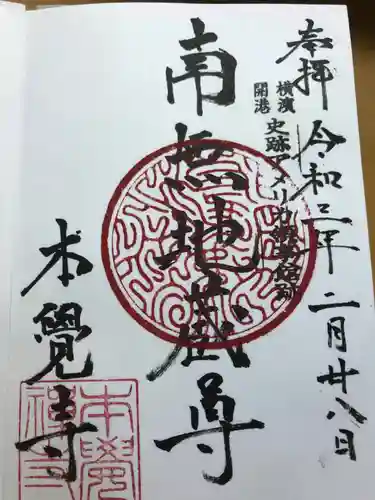 奉拝
令和二年二月廿八日
横濱
開港
史跡アメリカ領事館跡
南無地蔵尊
本覺寺